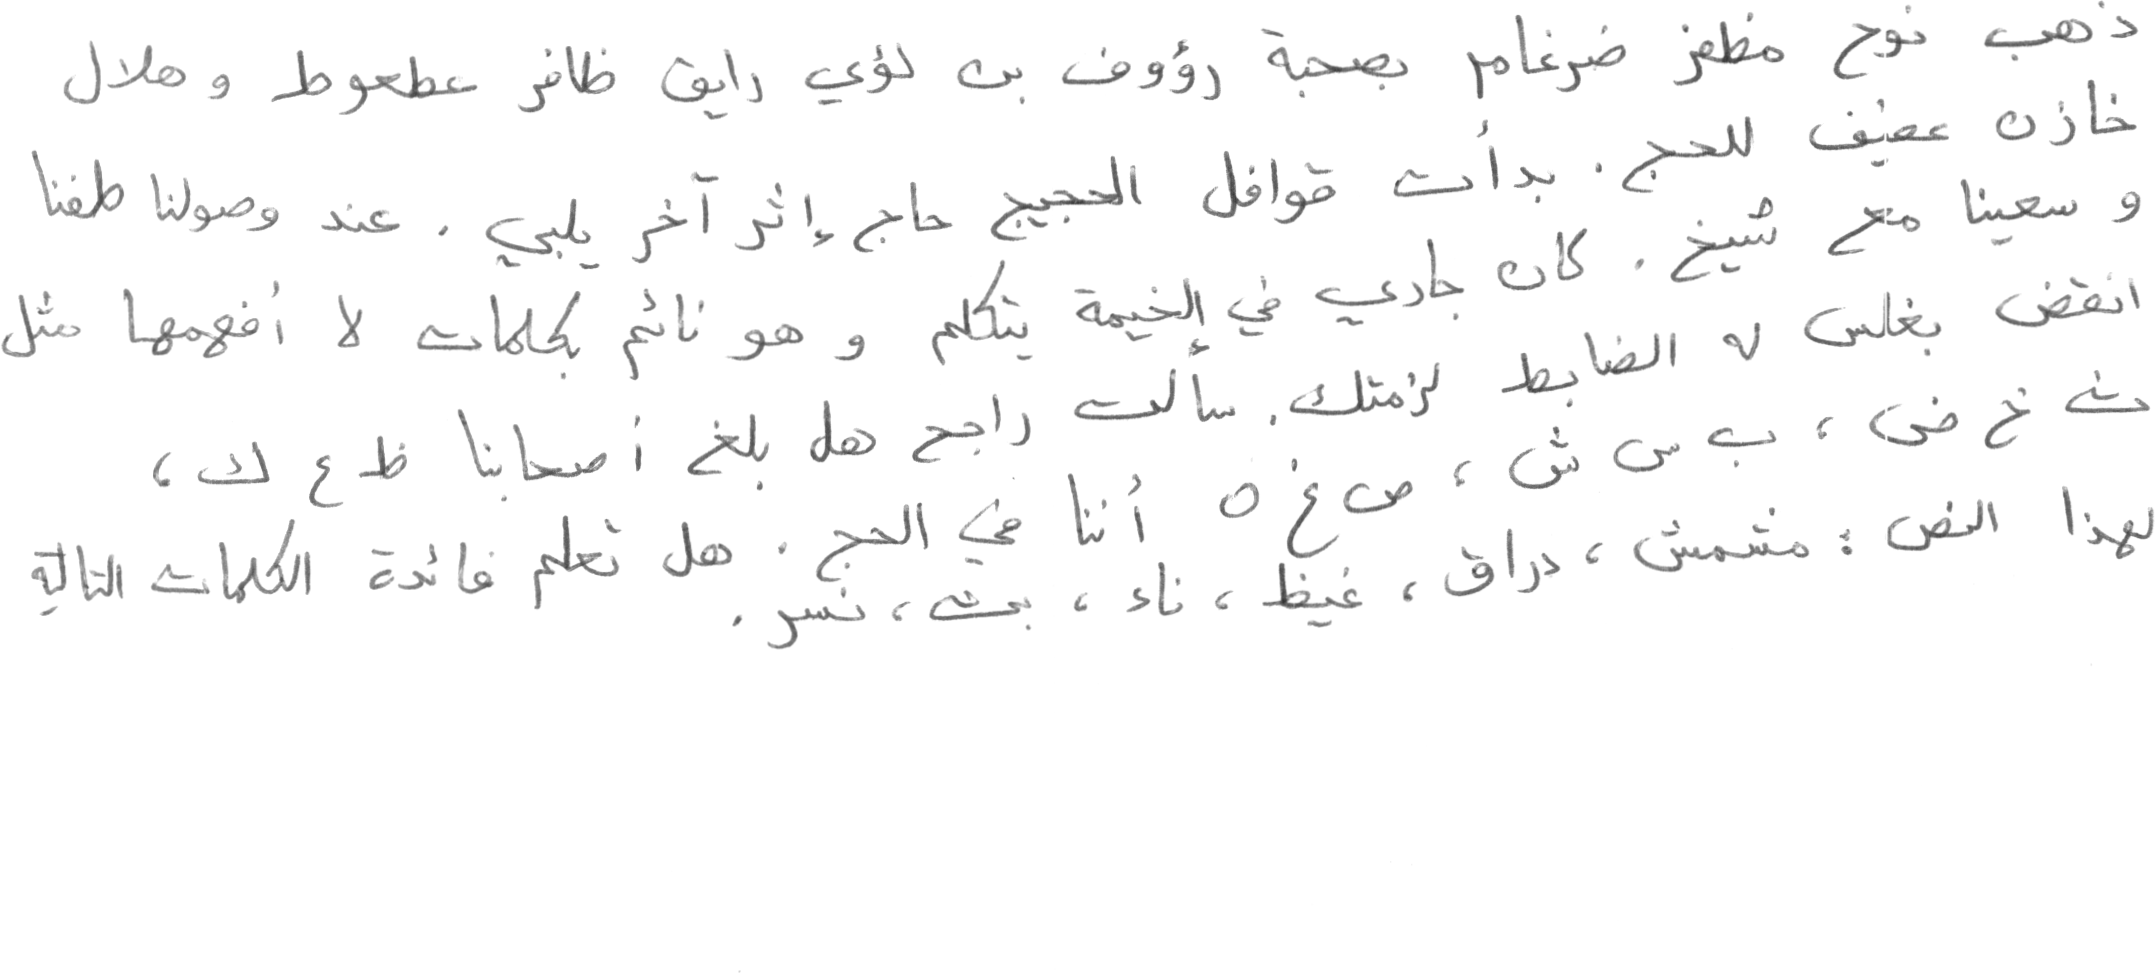 ذهب نوح مظفر ضرغام بصحبة رؤوف بن لؤي رايق ظافر عطعوط و هلال
خازن عفيف للحج . بدأت قوافل الحجيج حاج إثر آخر يلبي . عند وصولنا طفنا
و سعينا مع شيخ . كان جاري في الخيمة يتكلم و هو نائم بكلمات لا أفهمها مثل
انقض بغلس له الضابط لزمتك . سألت راجح هل بلغ أصحابنا ظ ع ك ،
ث خ ض ، ب س ش ، ص غ ه أننا في الحج . هل تعلم فائدة الكلمات التالية
لهذا النص : مشمش ، دراق ، غيظ ، ناء ، بث ، نسر .